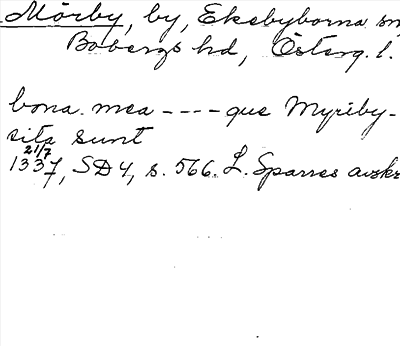 Mörby, by, Ekebyborna sn
Bobergs hd, Österg. l.
bona mea ---- que Myriby-
sita sunt
21/7
1337, SD 4, s. 566. L. Sparres avskr